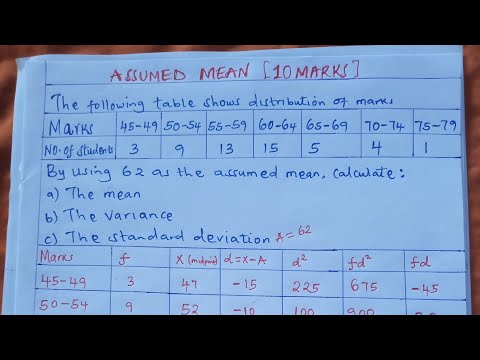 ASSUMED MEAN [10 MARKS]
The following table shows distribution of marks
Marks 45-49 50-54 55-59 60-64 65-69 70-74 75-79
No. of students 3 9 13 15 5 4 1
By using 62 as the assumed mean, calculate:
a) The mean
b) The variance
c) The standard deviation A=62
Marks f x (midpoint) d=x-A d² fd² fd
45-49 3 47 -15 225 675 -45
50-54 9 52 -10 100 900